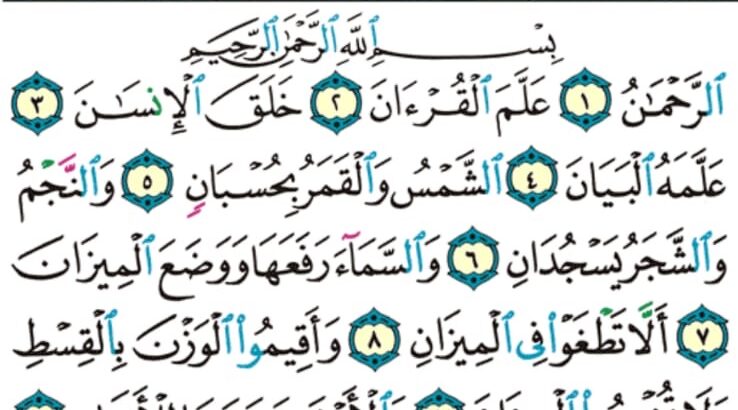 بِسْمِ ٱللَّهِ ٱلرَّحْمَٰنِ ٱلرَّحِيمِ
ٱلرَّحْمَٰنُ ١ عَلَّمَ ٱلْقُرْءَانَ ٢ خَلَقَ ٱلْإِنسَٰنَ ٣
عَلَّمَهُ ٱلْبَيَانَ ٤ ٱلشَّمْسُ وَٱلْقَمَرُ بِحُسْبَانٍ ٥ وَٱلنَّجْمُ
وَٱلشَّجَرُ يَسْجُدَانِ ٦ وَٱلسَّمَآءَ رَفَعَهَا وَوَضَعَ ٱلْمِيزَانَ
٧ أَلَّا تَطْغَوْا۟ فِى ٱلْمِيزَانِ ٨ وَأَقِيمُوا۟ ٱلْوَزْنَ بِٱلْقِسْطِ